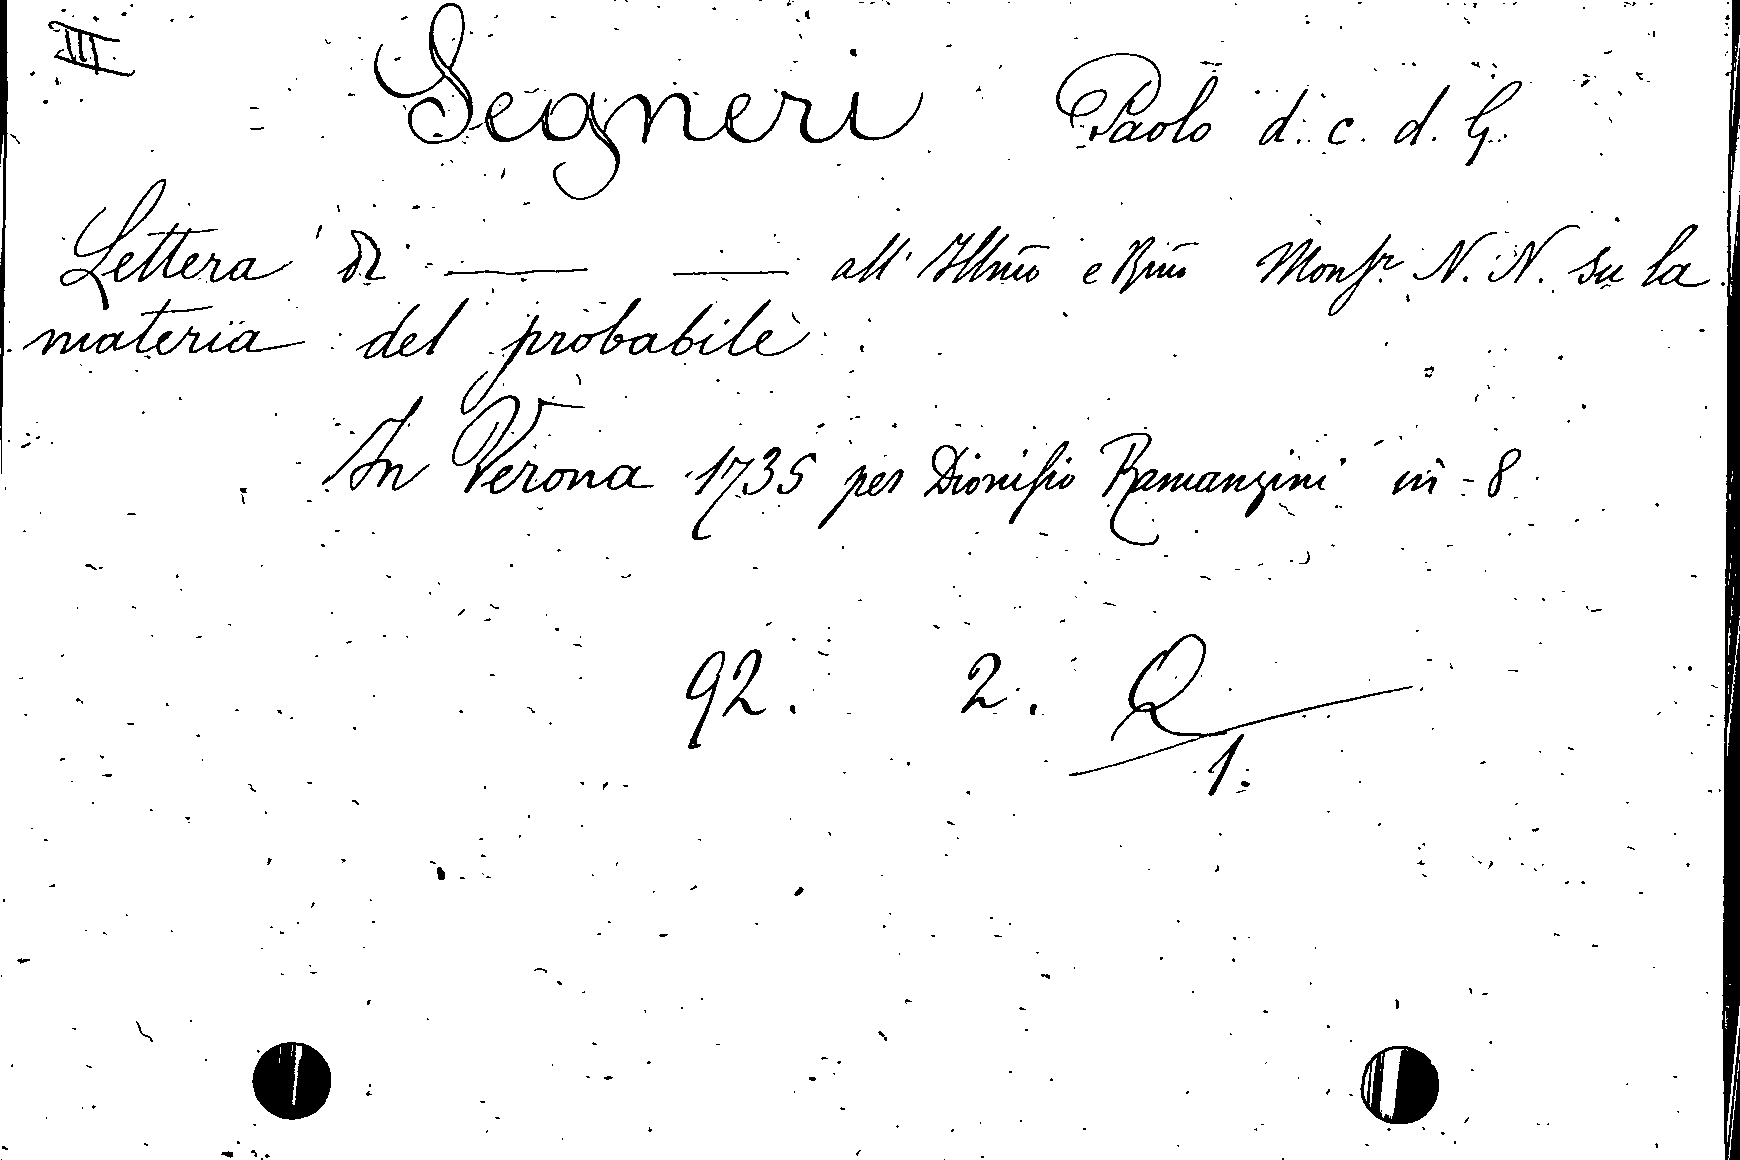 III
Segneri Paolo d. c. d. G.
Lettera di —— —— all' Illmo e Rmo Monsr. N. N. su la
materia del probabile
In Verona 1735 per Dionisio Ramanzini in-8
92. 2. Q
1.